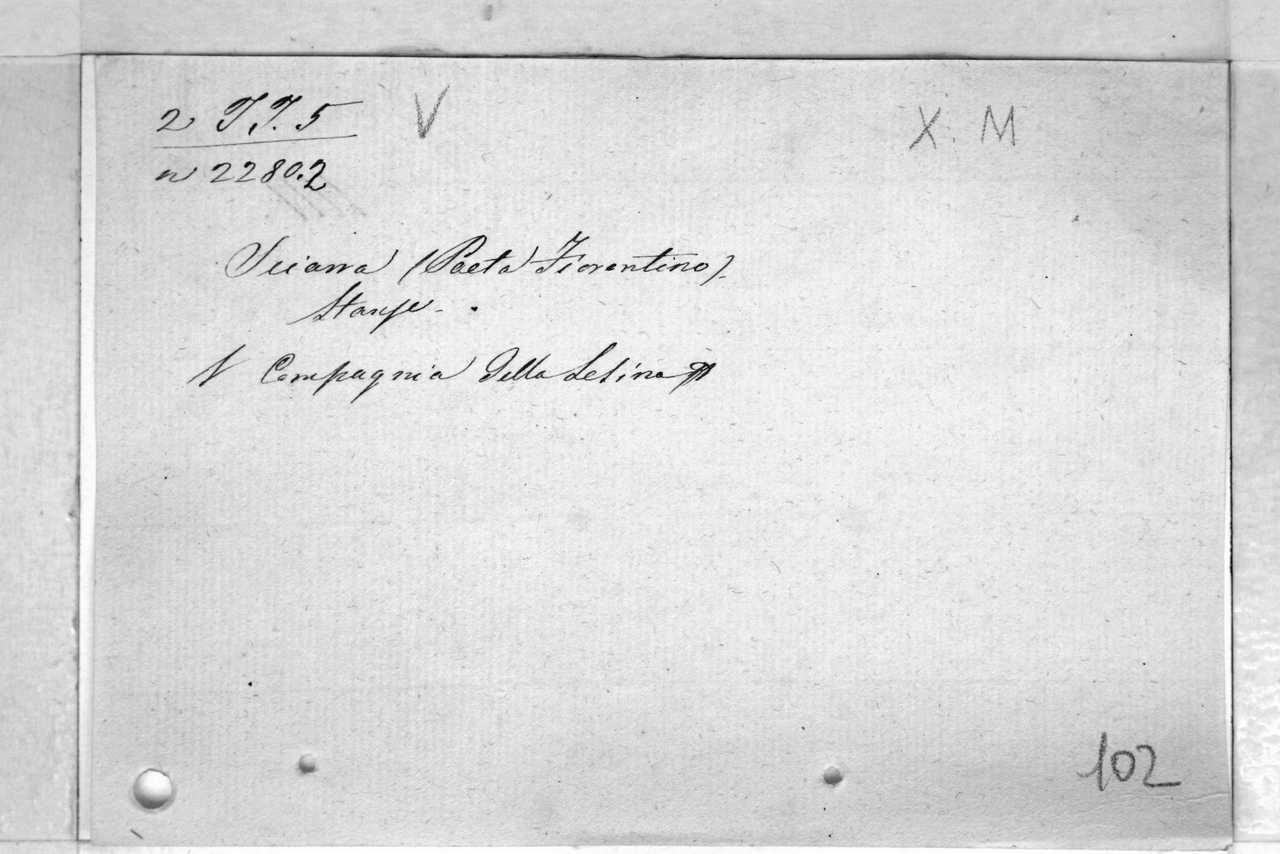 2 T.T. 5 V X. M
n 2280.2
Sciarra (Poeta Fiorentino).
Stanze.
V Compagnia della Lesina
102